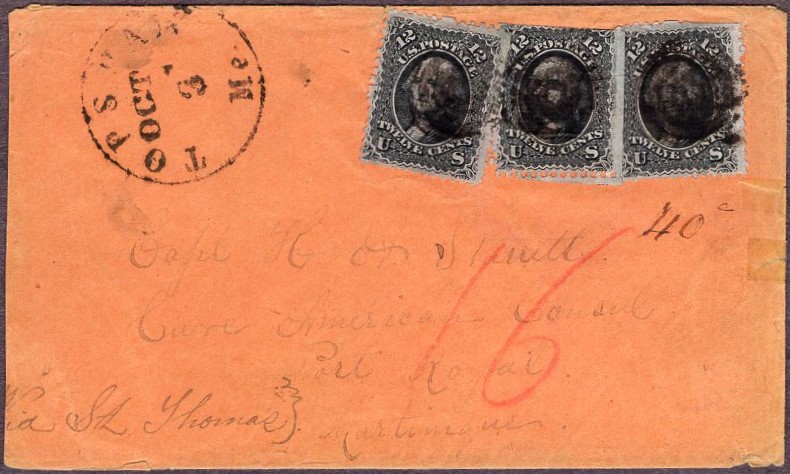 TOPSHAM Me.
OCT
3
12 12
U.S. POSTAGE
TWELVE CENTS
U S
12 12
U.S. POSTAGE
TWELVE CENTS
U S
12 12
U.S. POSTAGE
TWELVE CENTS
U S
40 c
Capt
Care American Consul
16
Port Royal
Martinique
Via St. Thomas